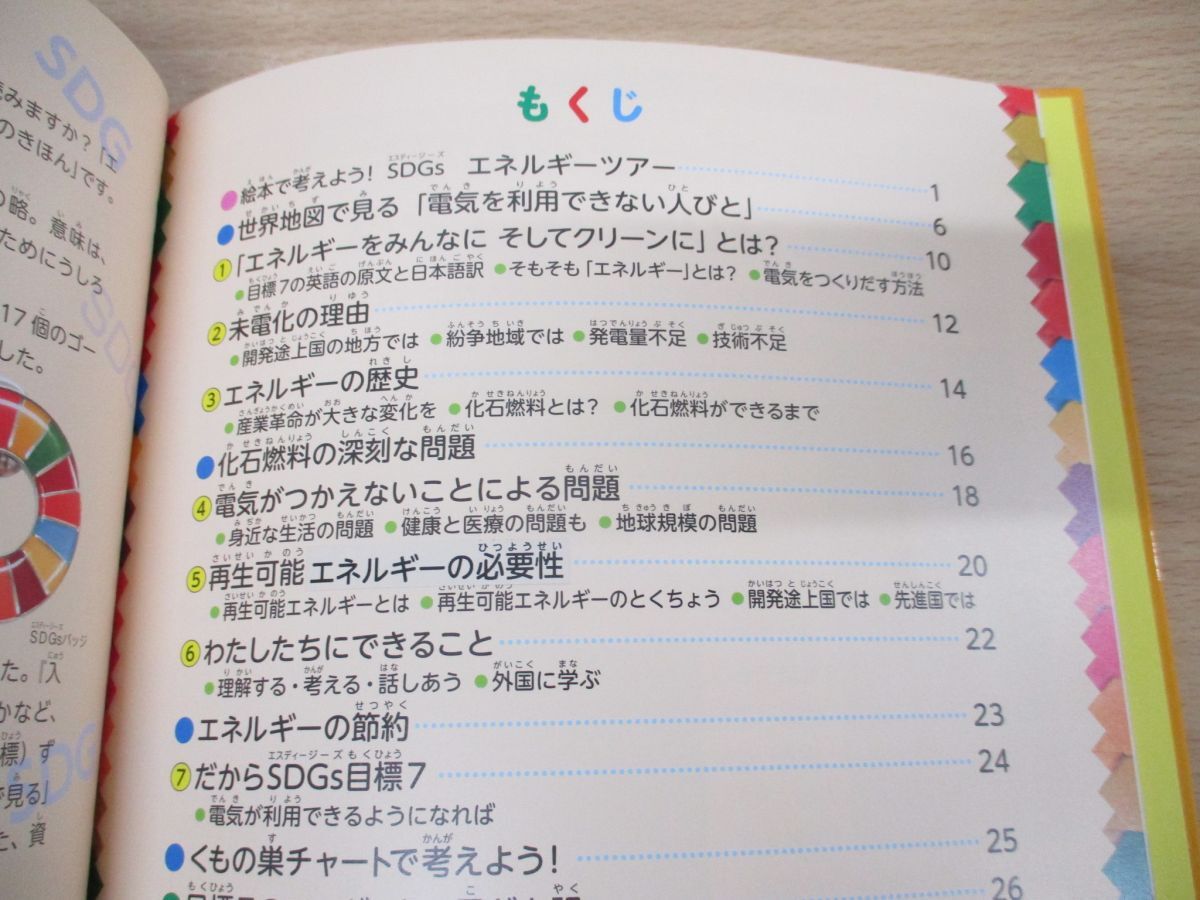 SDG
読みますか？「エ
のきほん」です。
の略。意味は、
ためにうしろ
17個のゴー
した。
SDGsバッジ
た。『入
かなど、
標）ず
で見る」
た、資
もくじ
絵本で考えよう！ SDGs エネルギーツアー 1
世界地図で見る 「電気を利用できない人びと」 6
① 「エネルギーをみんなに そしてクリーンに」とは？ 10
●目標7の英語の原文と日本語訳 ●そもそも「エネルギー」とは？ ●電気をつくりだす方法
② 未電化の理由 12
●開発途上国の地方では ●紛争地域では ●発電量不足 ●技術不足
③ エネルギーの歴史 14
●産業革命が大きな変化を ●化石燃料とは？ ●化石燃料ができるまで
●化石燃料の深刻な問題 16
④ 電気がつかえないことによる問題 18
●身近な生活の問題 ●健康と医療の問題も ●地球規模の問題
⑤ 再生可能エネルギーの必要性 20
●再生可能エネルギーとは ●再生可能エネルギーのとくちょう ●開発途上国では ●先進国では
⑥ わたしたちにできること 22
●理解する・考える・話しあう ●外国に学ぶ
●エネルギーの節約 23
⑦ だからSDGs目標7 24
●電気が利用できるようになれば
●くもの巣チャートで考えよう！ 25
26